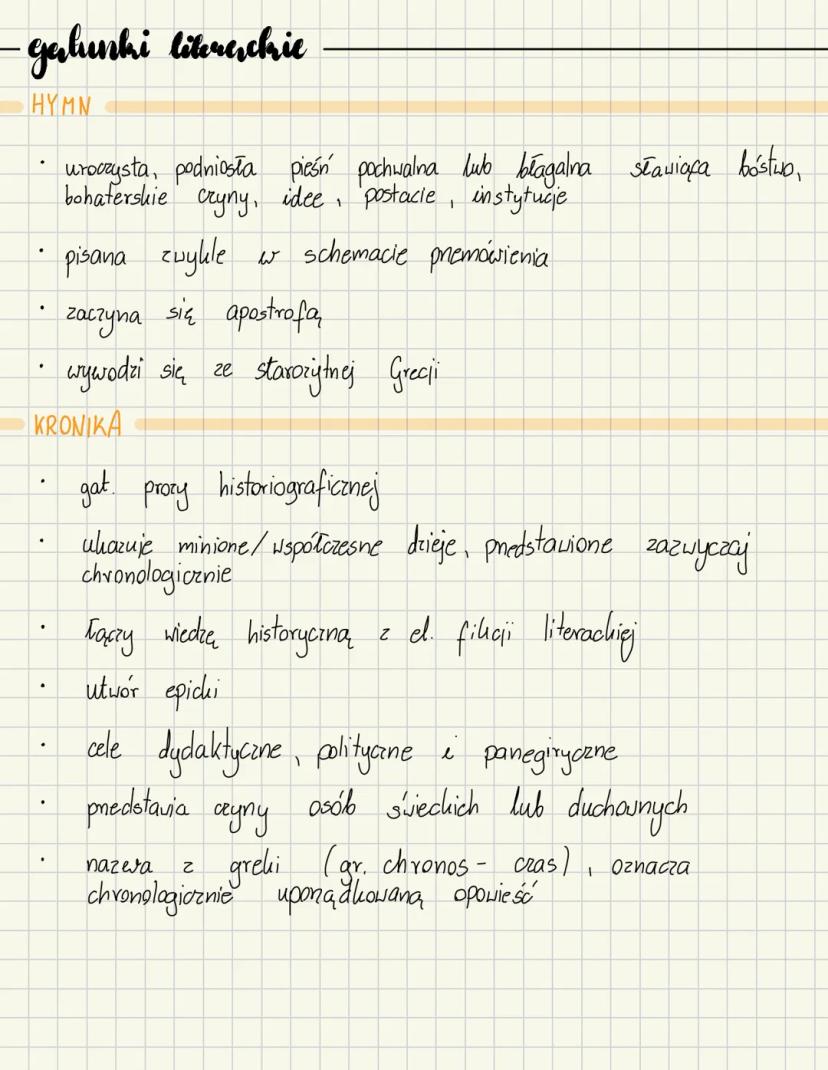 gatunki literackie
HYMN
• uroczysta, podniosła pieśń pochwalna lub błagalna sławiąca bóstwo,
bohaterskie czyny, idee, postacie, instytucje
• pisana zwykle w schemacie przemówienia
• zaczyna się apostrofą
• wywodzi się ze starożytnej Grecji
KRONIKA
• gat. prozy historiograficznej
• ukazuje minione/współczesne dzieje, przedstawione zazwyczaj
chronologicznie
• łączy wiedzę historyczną z el. fikcji literackiej
• utwór epicki
• cele dydaktyczne, polityczne i panegiryczne
• przedstawia czyny osób świeckich lub duchownych
• nazwa z greki (gr. chronos - czas), oznacza
chronologicznie uporządkowaną opowieść